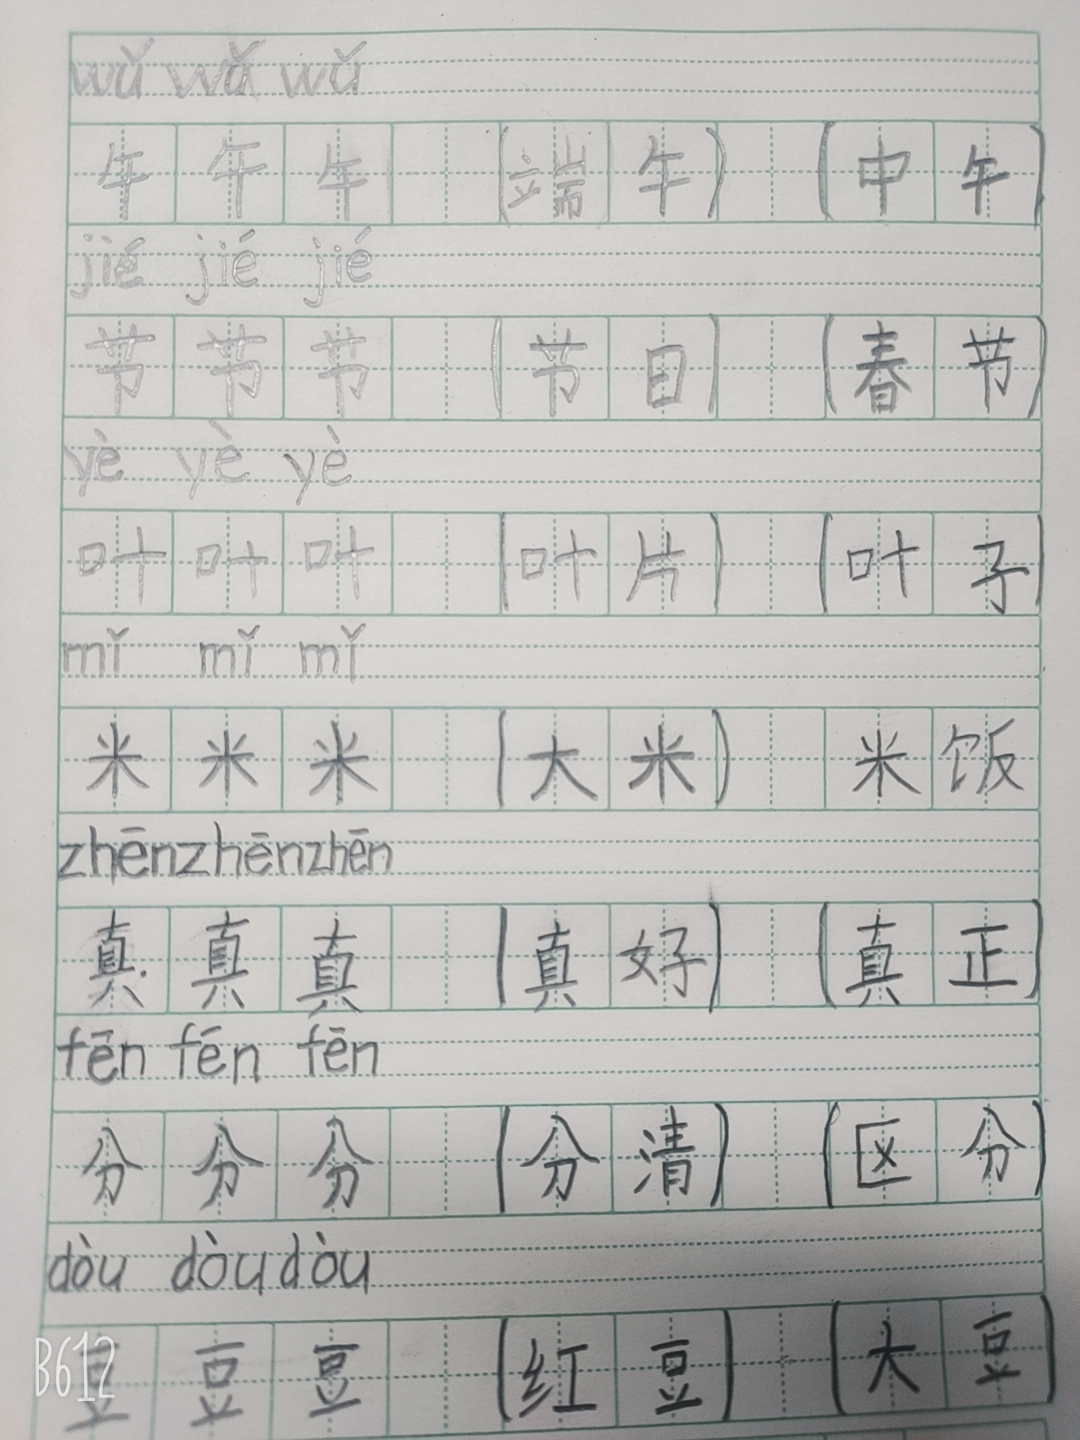 wǔ wǔ wǔ
午 午 午 (端 午) (中 午)
jié jié jié
节 节 节 (节 目) (春 节)
yè yè yè
叶 叶 叶 (叶 片) (叶 子)
mǐ mǐ mǐ
米 米 米 (大 米) 米 饭
zhēn zhēn zhēn
真 真 真 (真 好) (真 正)
fēn fēn fēn
分 分 分 (分 清) (区 分)
dòu dòu dòu
豆 豆 豆 (红 豆) (大 豆)
B612